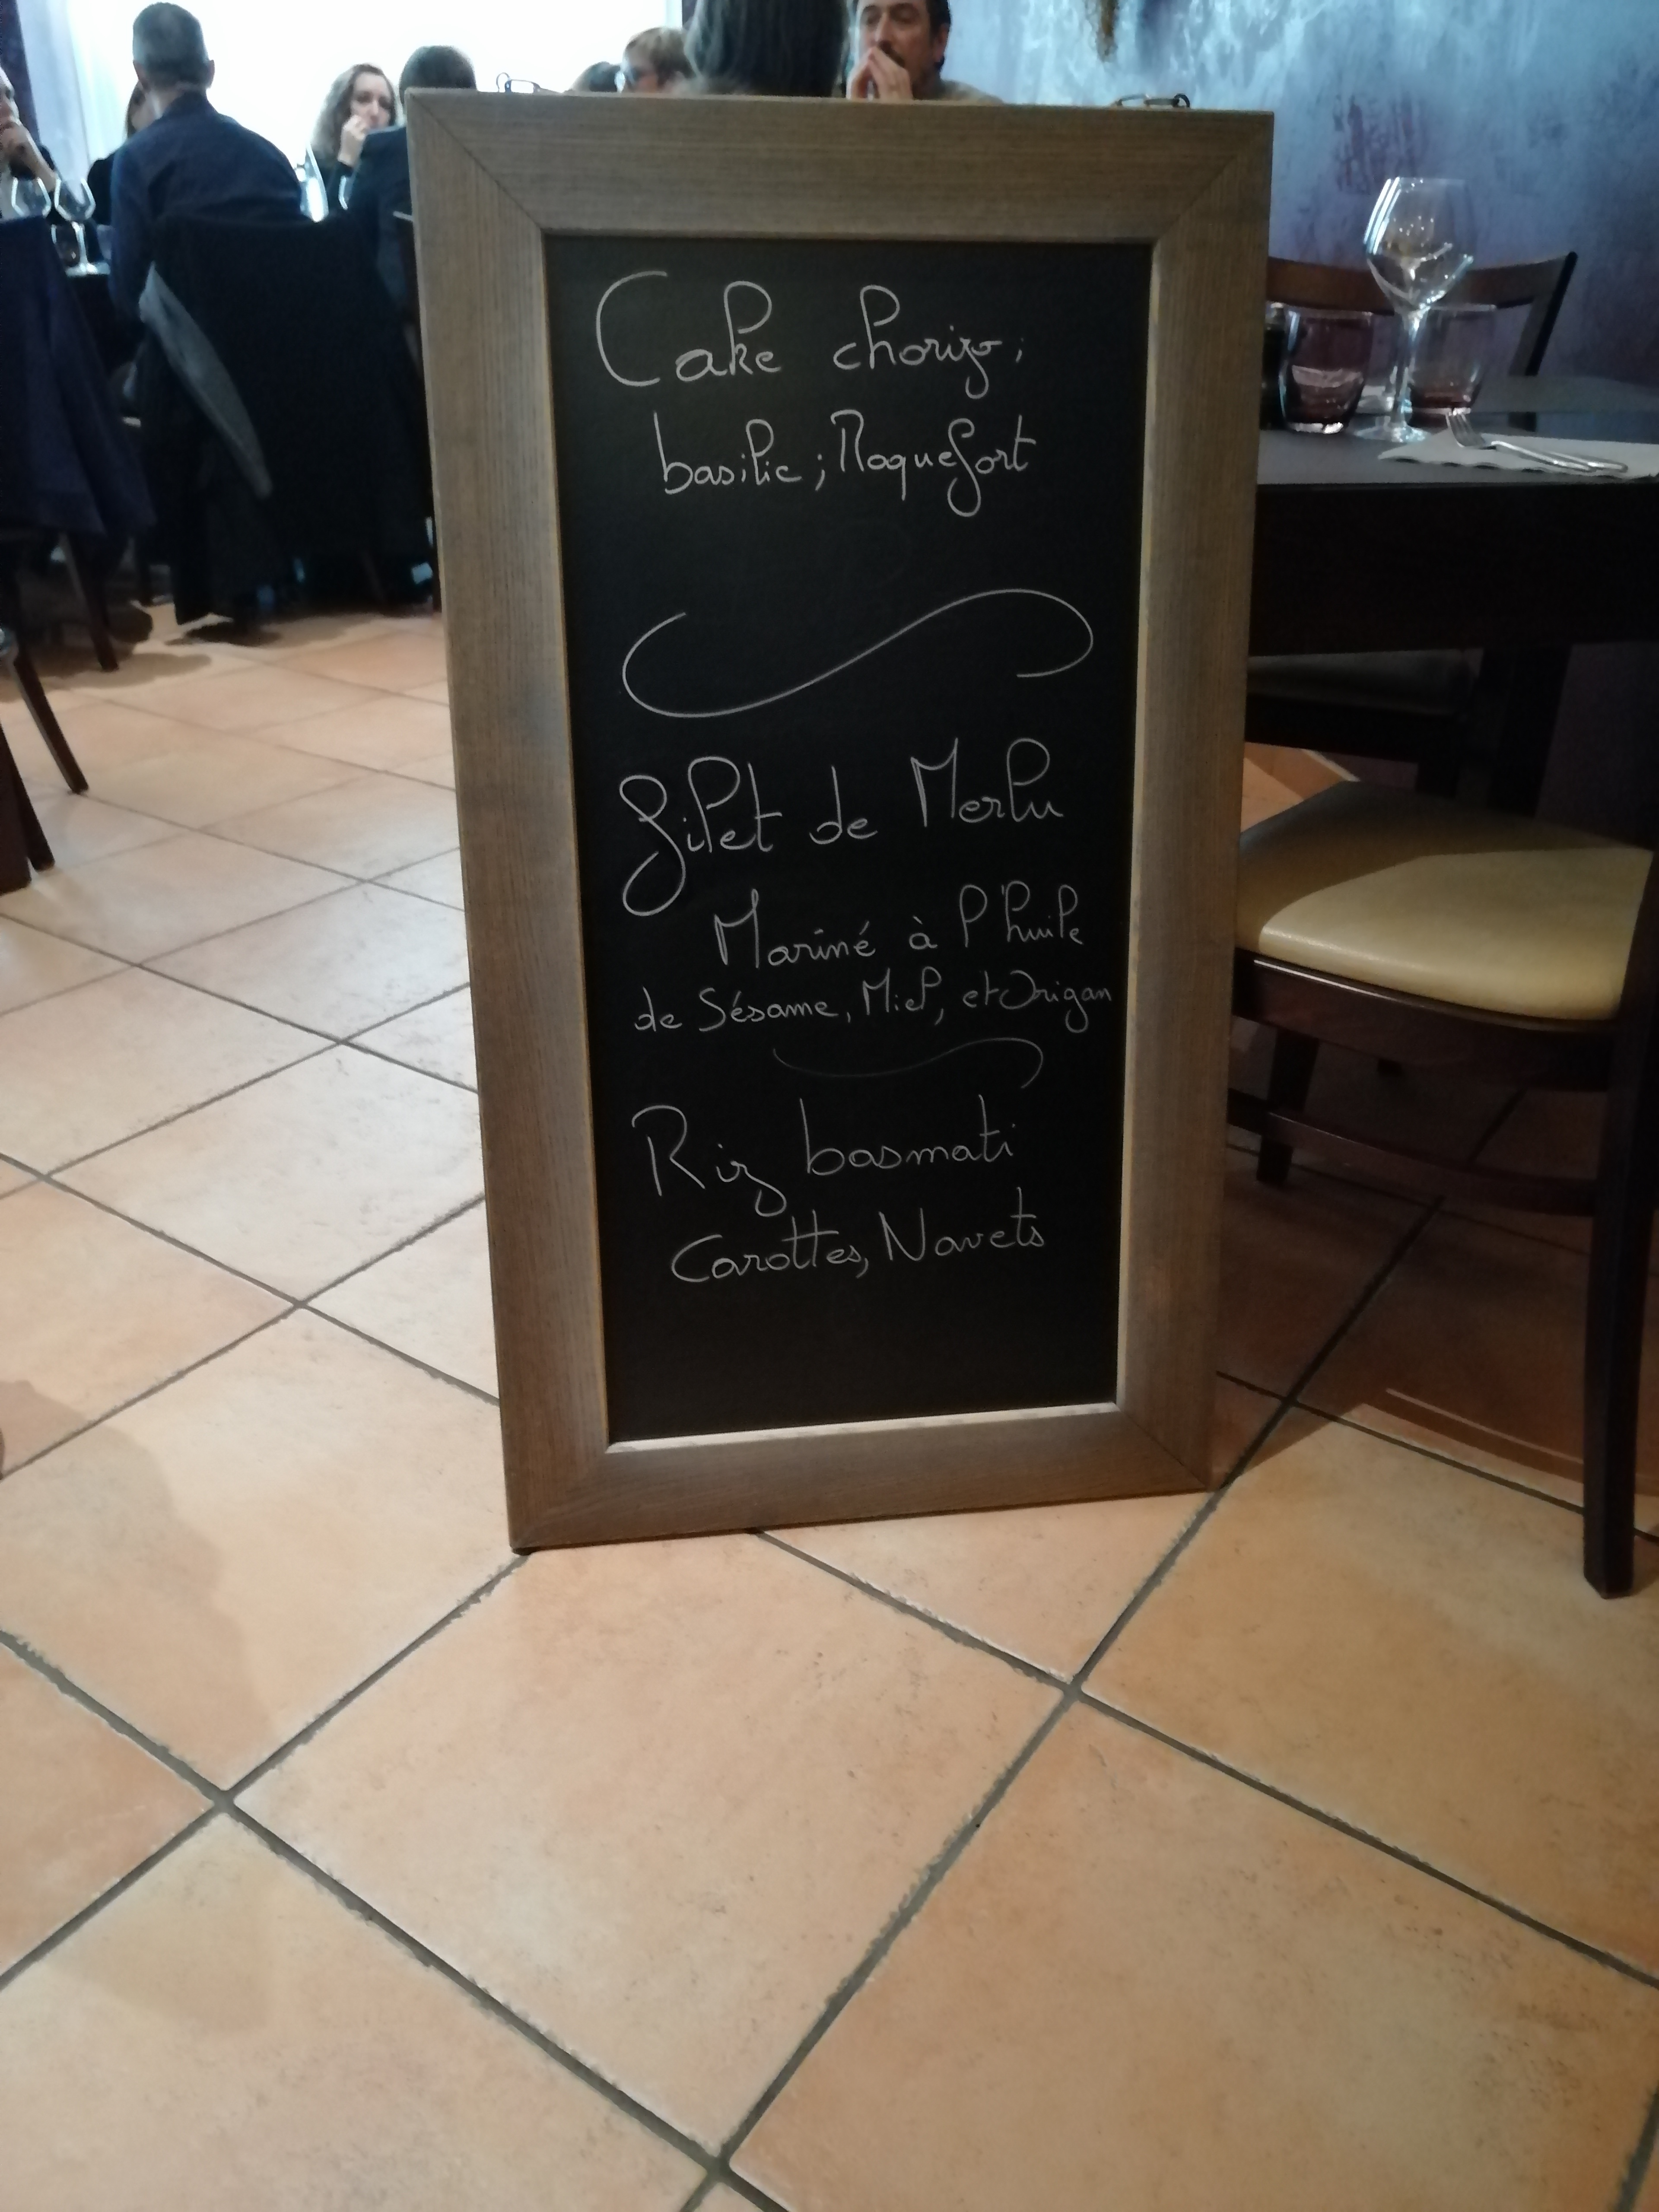 Cake chorizo ;
basilic ; Roquefort
Filet de Merlu
Mariné à l'huile
de Sésame, Miel, et Origan
Riz basmati
Carottes, Navets